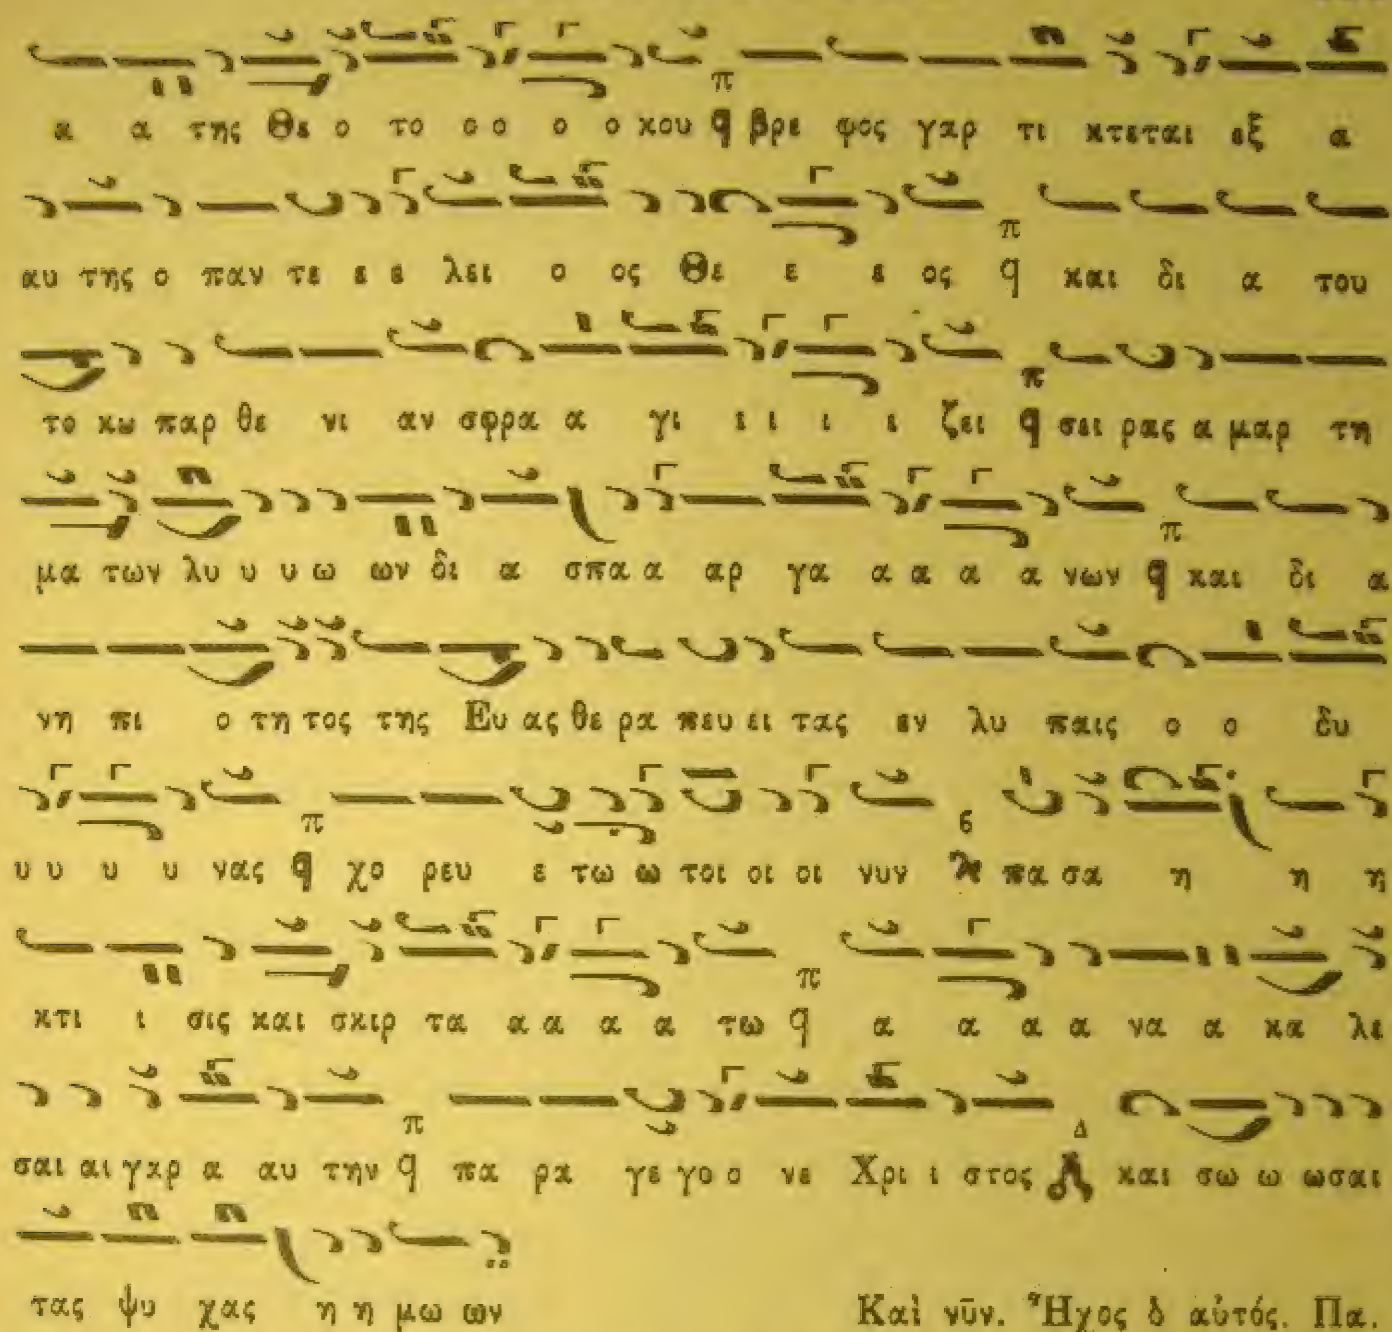 α α της Θε ο το ο ο ο ο κου βρε φος γαρ τι κτεται εξ α
αυ της ο παν τε ε ε λει ο ος Θε ε ε ος και δι α του
το κω παρ θε νι αν σφρα α γι ι ι ι ι ζει σει ρας α μαρ τη
μα των λυ υ υ υ ω ων δι α σπα α αρ γα α α α α νων και δι α
νη πι ο τη τος της Ευ ας θε ρα πευ ει τας εν λυ παις ο ο δυ
υ υ υ υ νας χο ρευ ε τω ω τοι οι οι νυν πα σα η η η
κτι ι σις και σκιρ τα α α α α τω α α α α να α κα λε
σαι αι γαρ α αυ την πα ρα γε γο ο νε Χρι ι στος και σω ω ωσαι
τας ψυ χας η η μω ων
Καὶ νῦν. Ἦχος δ αὐτός. Πα.